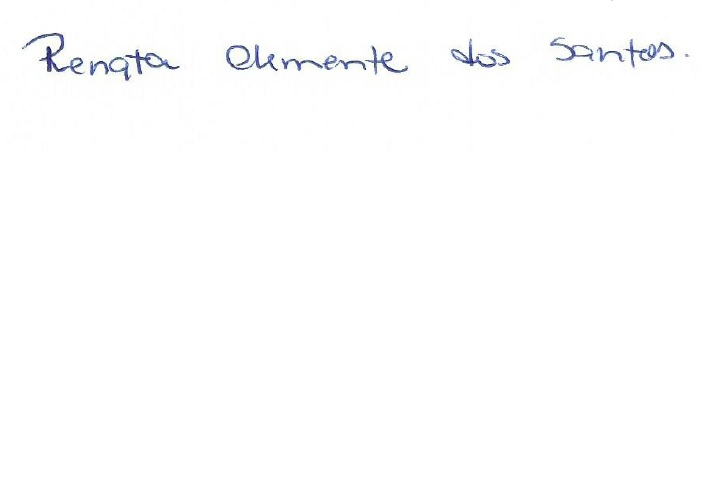 Renata Clemente dos Santos.